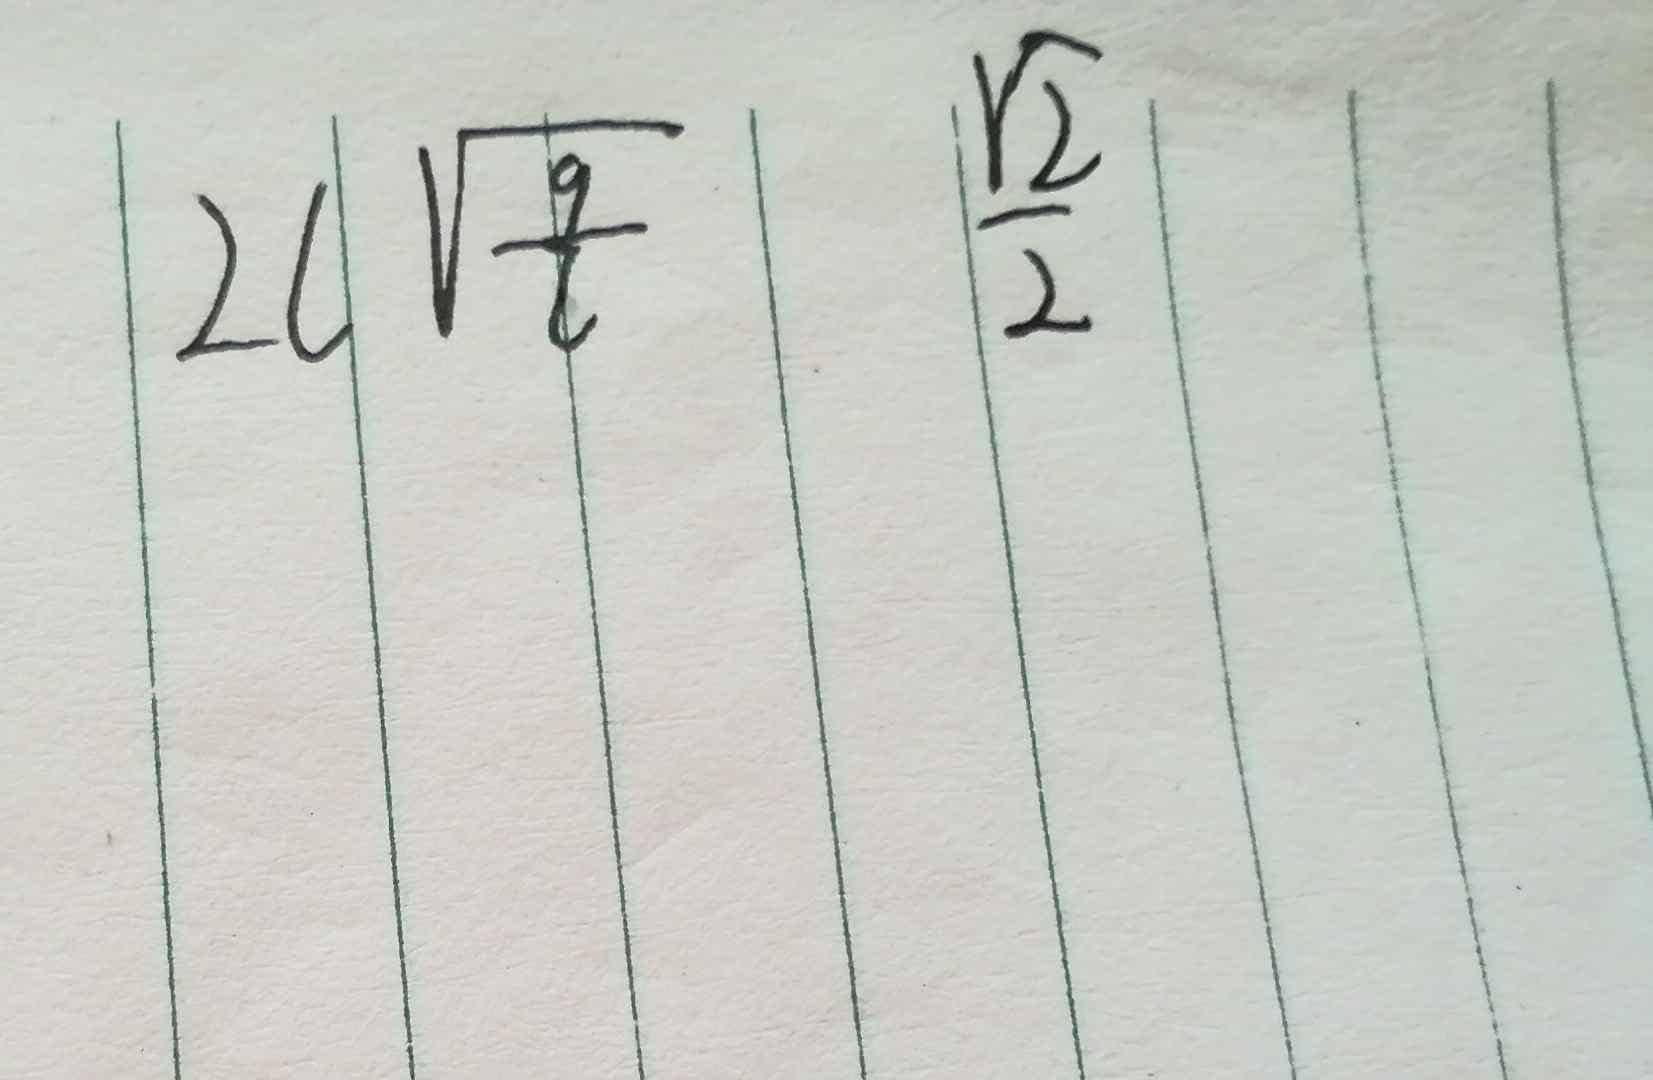 2l √(g/l) √2/2